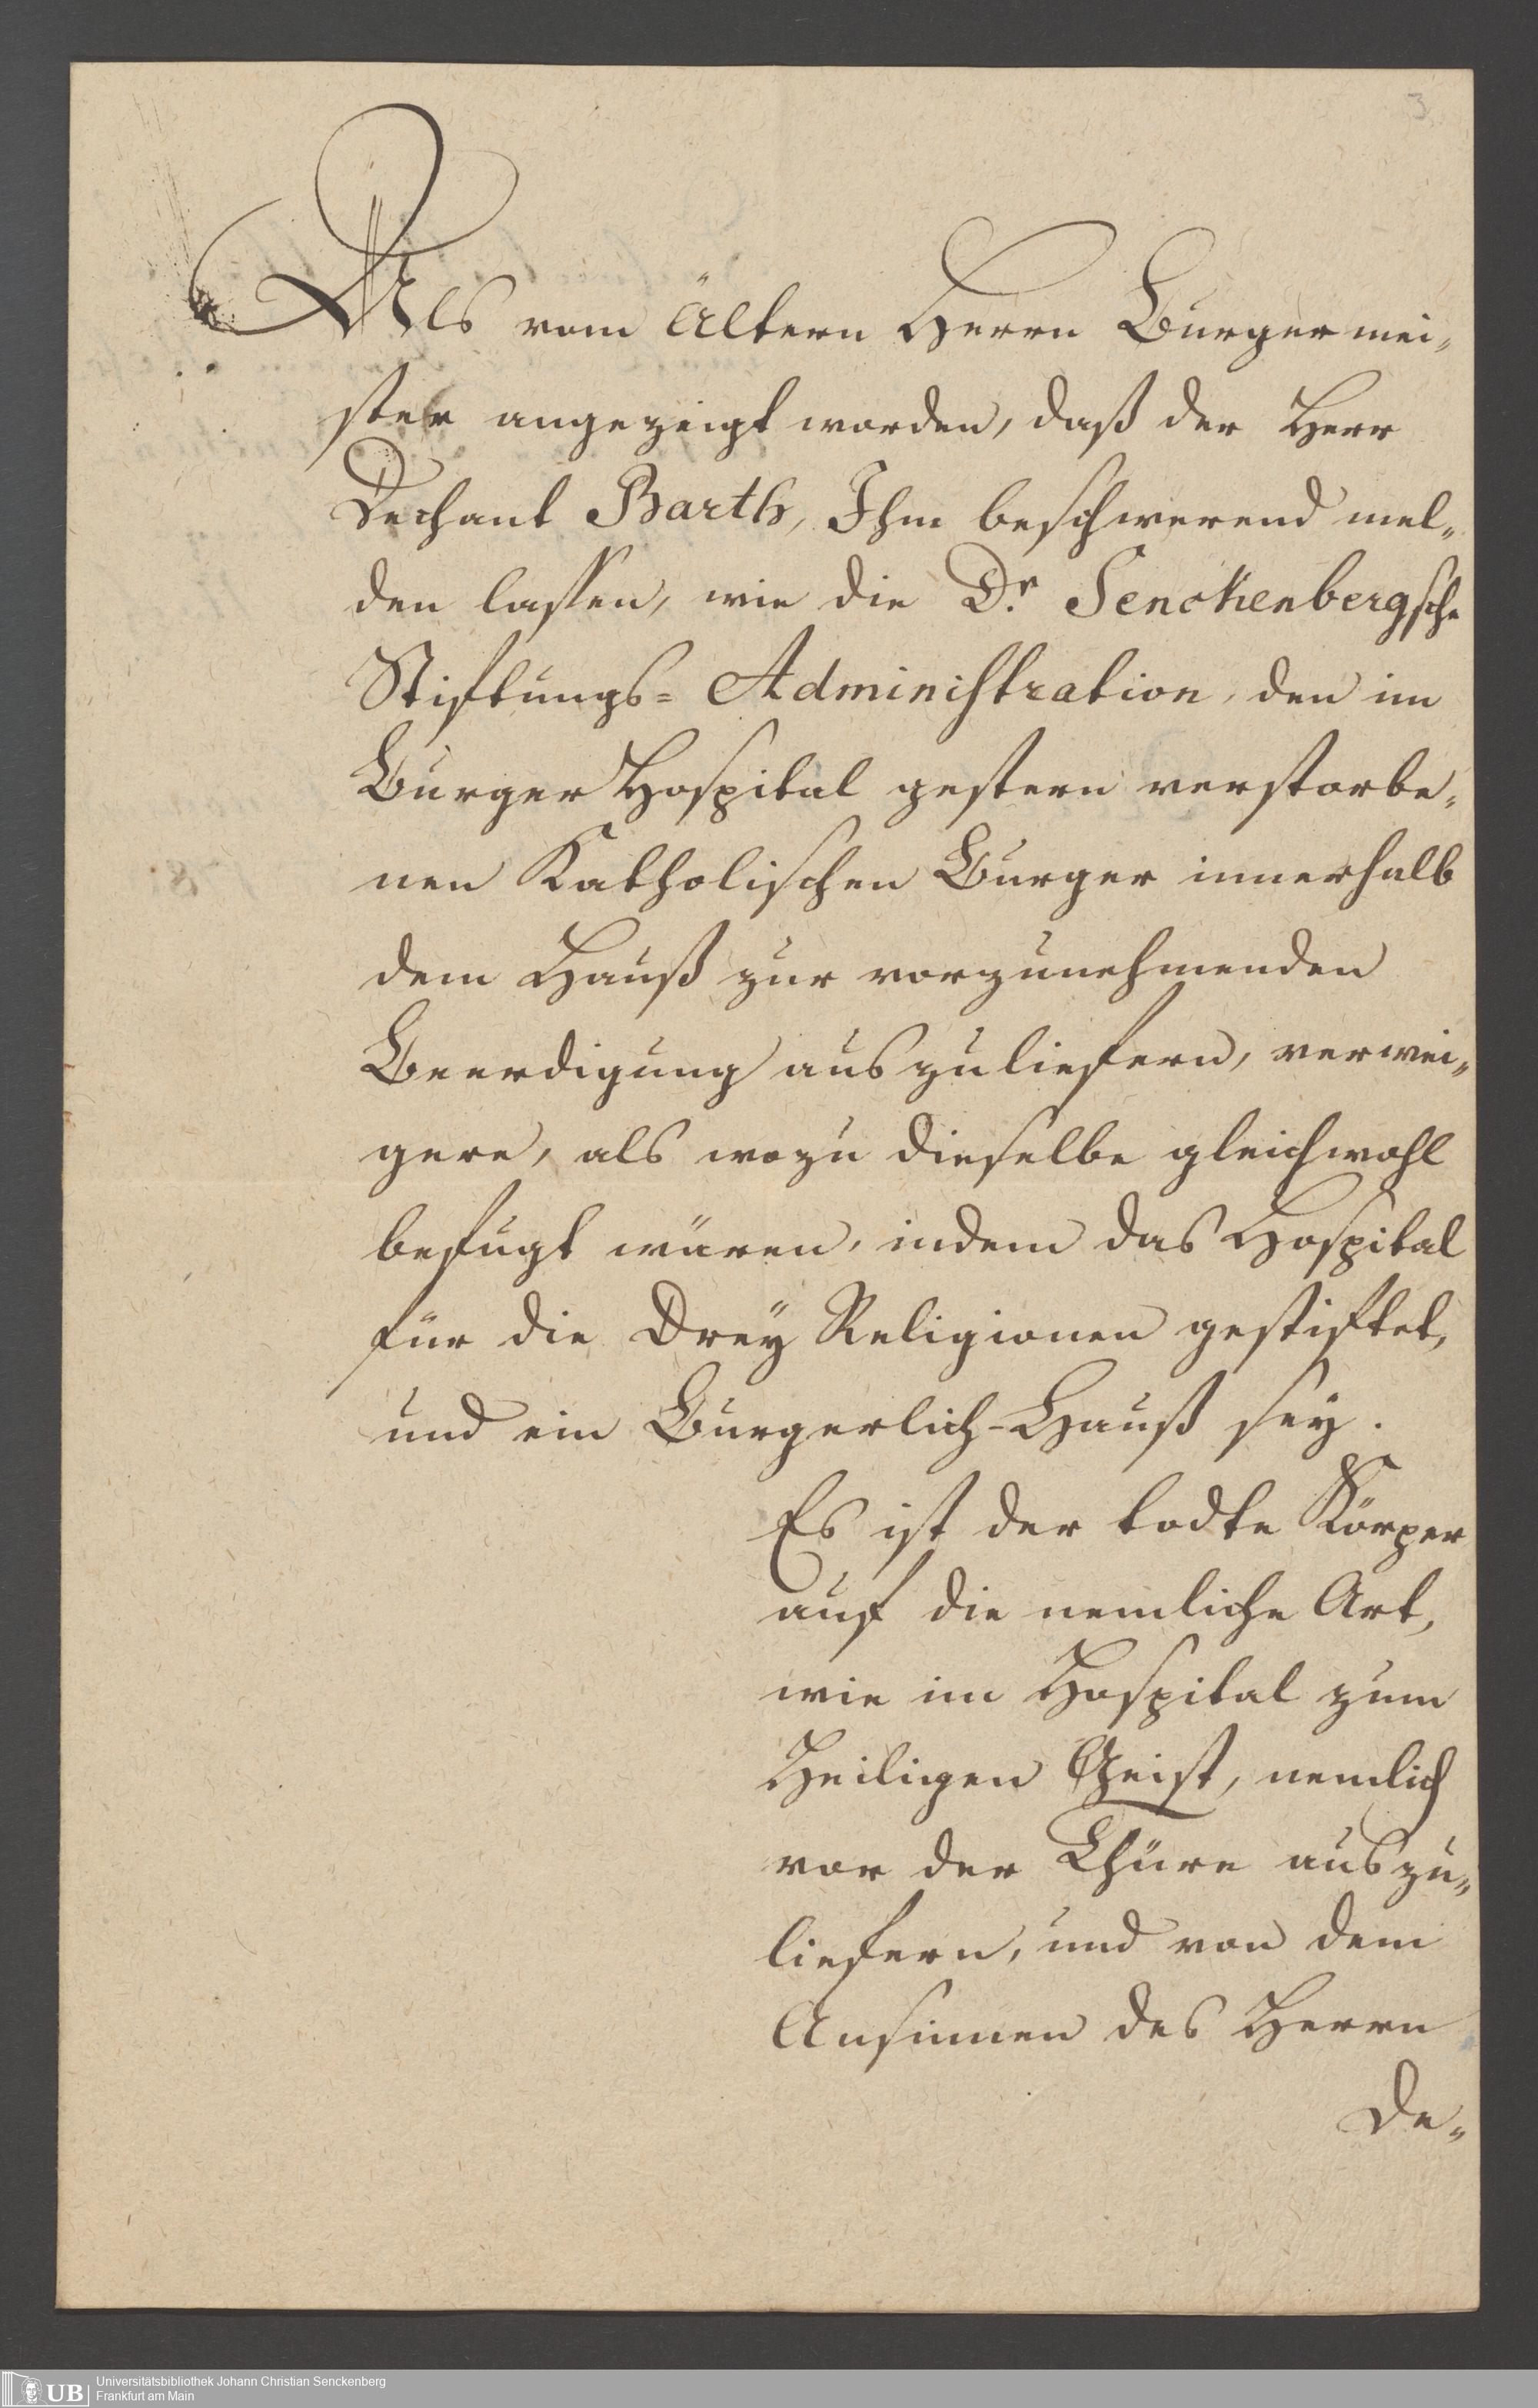 3.
Als vom Ältern Herrn Burgermei„
ster angezeigt worden, daß der Herr
Dechant Barth, Ihm beschwerend mel„
den lassen, wie die Dr. Senckenbergsche
Stiftungs= Administration, den im
Burger Hospital gestern verstorbe„
nen Katholischen Burger innerhalb
dem Hauß zur vorzunehmenden
Beerdigung auszuliefern, verwei„
gere, als wozu dieselbe gleichwohl
befugt wären, indem das Hospital
für die Drey Religionen gestiftet,
und ein Burgerlich-Hauß sey.
Es ist der todte Körper
auf die nemliche Art,
wie im Hospital zum
Heiligen Geist, nemlich
vor der Thüre auszu„
liefern, und von dem
Ansinnen des Herrn
De„
UB
Universitätsbibliothek Johann Christian Senckenberg
Frankfurt am Main